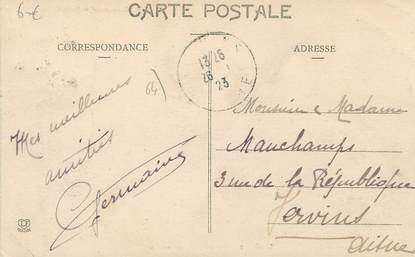 6-€
CARTE POSTALE
CORRESPONDANCE
ADRESSE
13 26
23
64)
Mes meilleures
amitiés
Germaine
Monsieur & Madame
Mauchamps
3 rue de la République
Vervins
Aisne